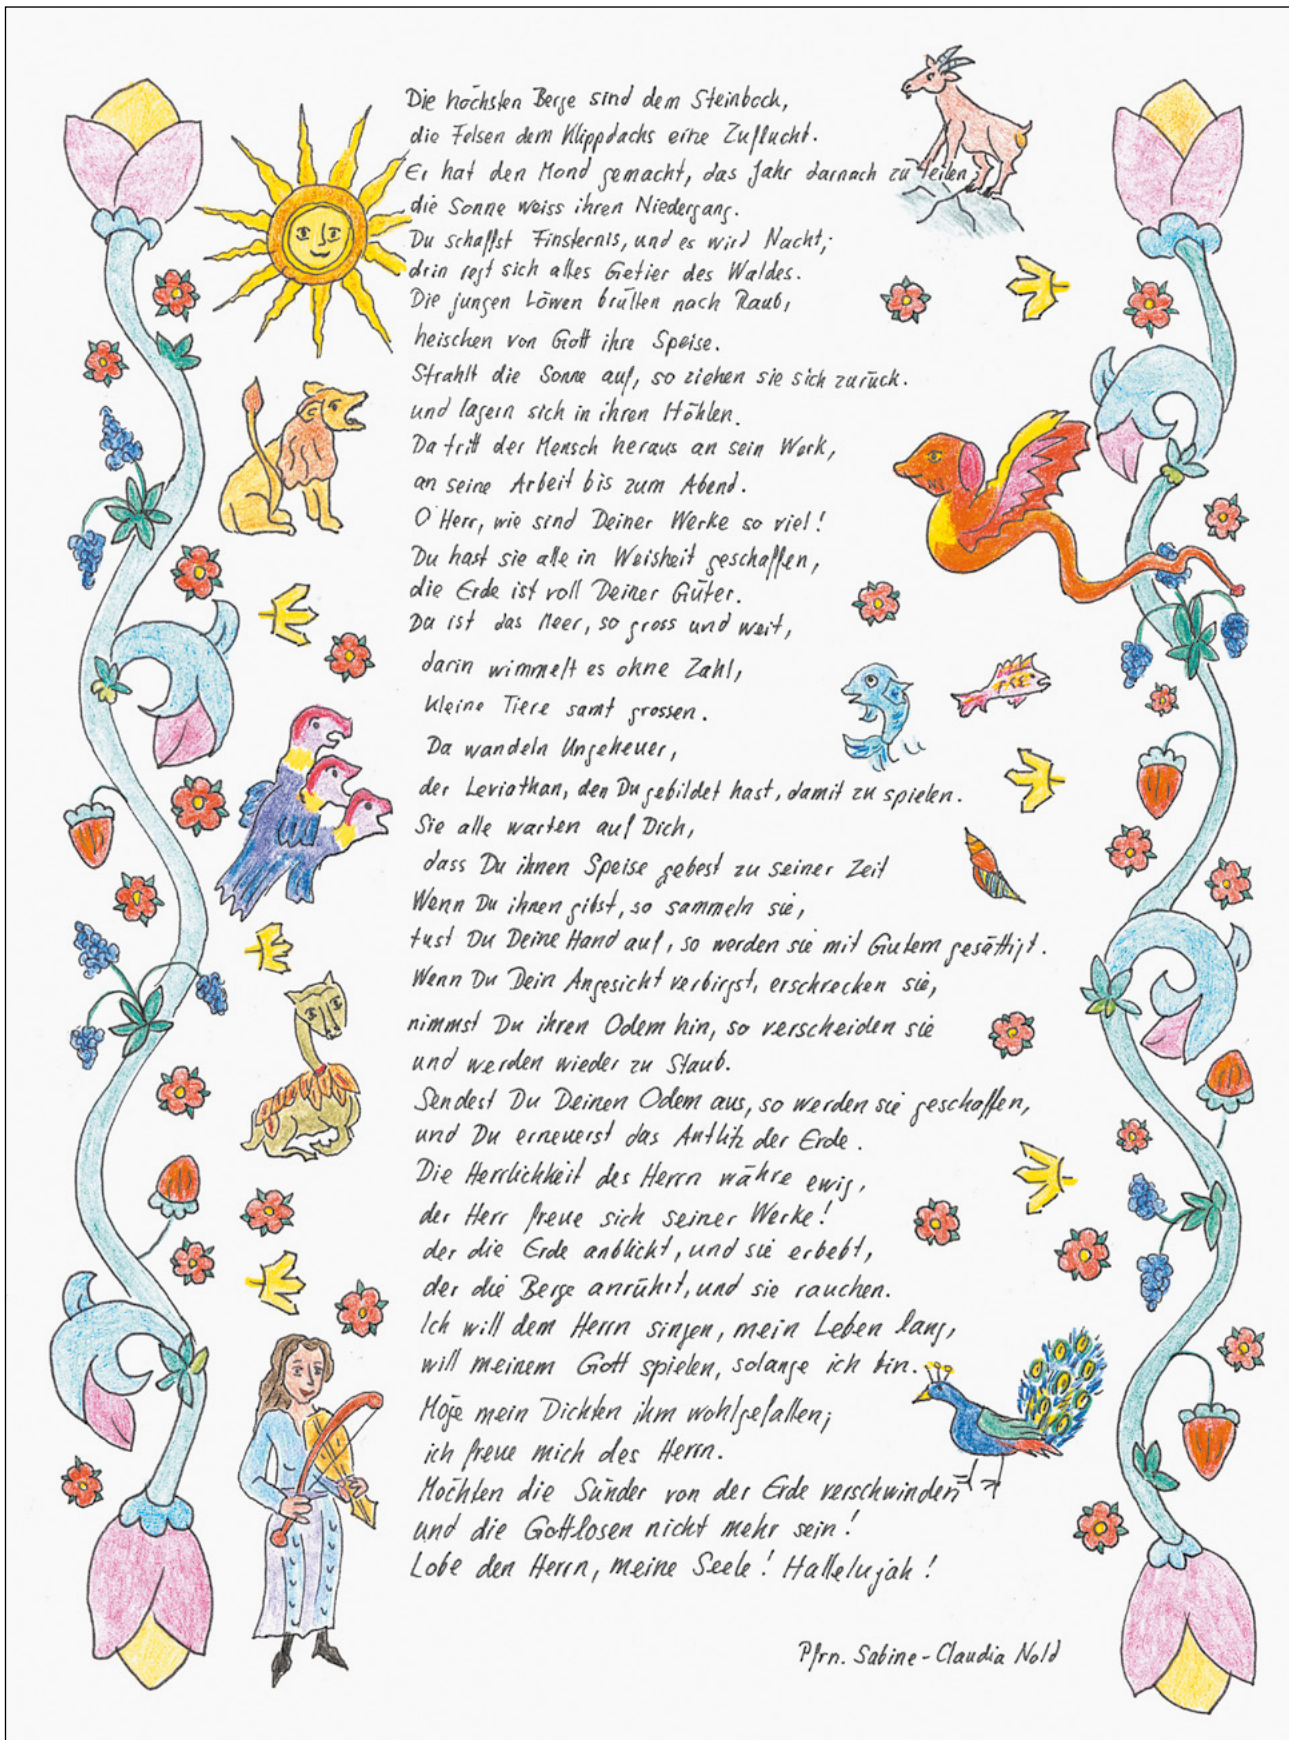 Die höchsten Berge sind dem Steinbock,
die Felsen dem Klippdachs eine Zuflucht.
Er hat den Mond gemacht, das Jahr darnach zu teilen,
die Sonne weiss ihren Niedergang.
Du schaffst Finsternis, und es wird Nacht;
drin regt sich alles Getier des Waldes.
Die jungen Löwen brüllen nach Raub,
heischen von Gott ihre Speise.
Strahlt die Sonne auf, so ziehen sie sich zurück.
und lagern sich in ihren Höhlen.
Da tritt der Mensch heraus an sein Werk,
an seine Arbeit bis zum Abend.
O Herr, wie sind Deiner Werke so viel!
Du hast sie alle in Weisheit geschaffen,
die Erde ist voll Deiner Güter.
Da ist das Meer, so gross und weit,
darin wimmelt es ohne Zahl,
kleine Tiere samt grossen.
Da wandeln Ungeheuer,
der Leviathan, den Du gebildet hast, damit zu spielen.
Sie alle warten auf Dich,
dass Du ihnen Speise gebest zu seiner Zeit
Wenn Du ihnen gibst, so sammeln sie,
tust Du Deine Hand auf, so werden sie mit Gutem gesättigt.
Wenn Du Dein Angesicht verbirgst, erschrecken sie,
nimmst Du ihren Odem hin, so verscheiden sie
und werden wieder zu Staub.
Sendest Du Deinen Odem aus, so werden sie geschaffen,
und Du erneuerst das Antlitz der Erde.
Die Herrlichkeit des Herrn währe ewig,
der Herr freue sich seiner Werke!
der die Erde anblickt, und sie erbebt,
der die Berge anrührt, und sie rauchen.
Ich will dem Herrn singen, mein Leben lang,
will meinem Gott spielen, solange ich bin.
Möge mein Dichten ihm wohlgefallen;
ich freue mich des Herrn.
Möchten die Sünder von der Erde verschwinden
und die Gottlosen nicht mehr sein!
Lobe den Herrn, meine Seele! Hallelujah!
Pfrn. Sabine-Claudia Nold